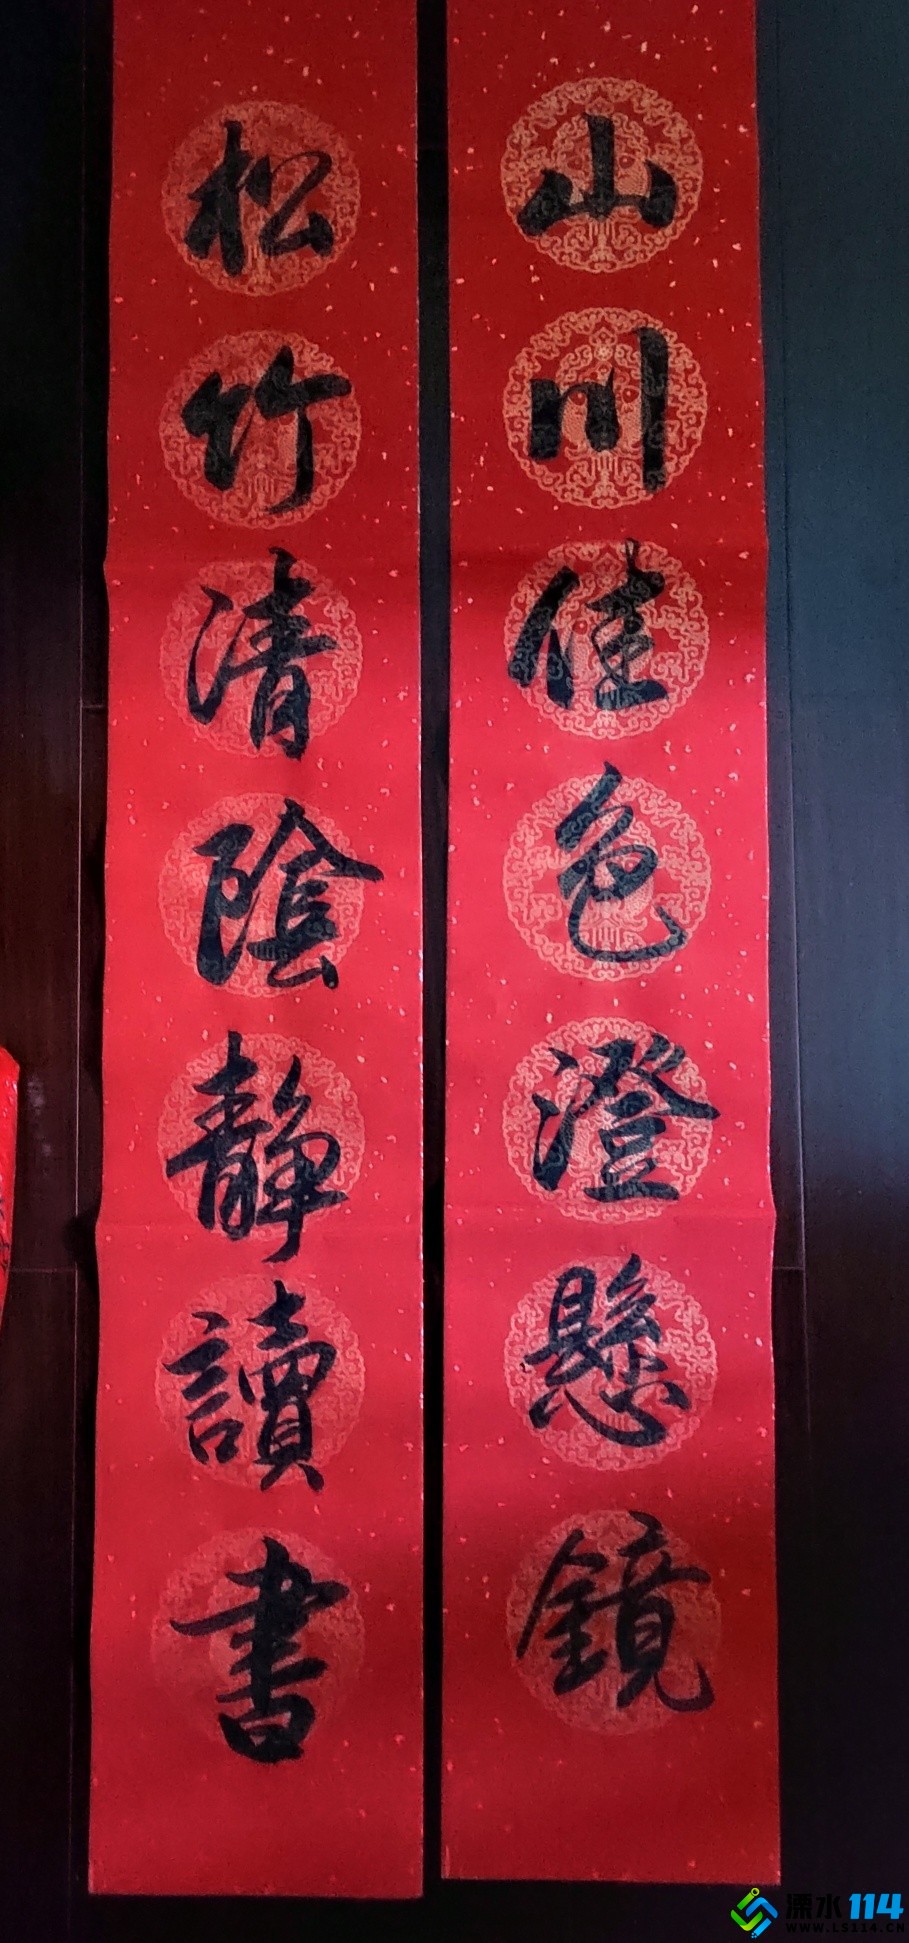 山川佳色澄懸鏡
松竹清陰靜讀書
溧水114
WWW.LS114.CN